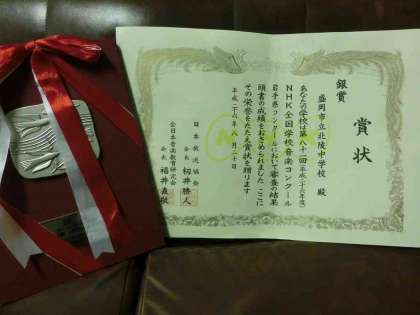 賞状
銀賞
盛岡市立北陵中学校 殿
あなたの学校は第八十一回(平成二十六年度)
NHK全国学校音楽コンクール
岩手県コンクールにおいて審査の結果
頭書の成績をおさめられました ここに
その栄誉をたたえ賞状を贈ります
平成二十六年八月二十日
日本放送協会
会長 籾井勝人
全日本音楽教育研究会
会長 福井直敬